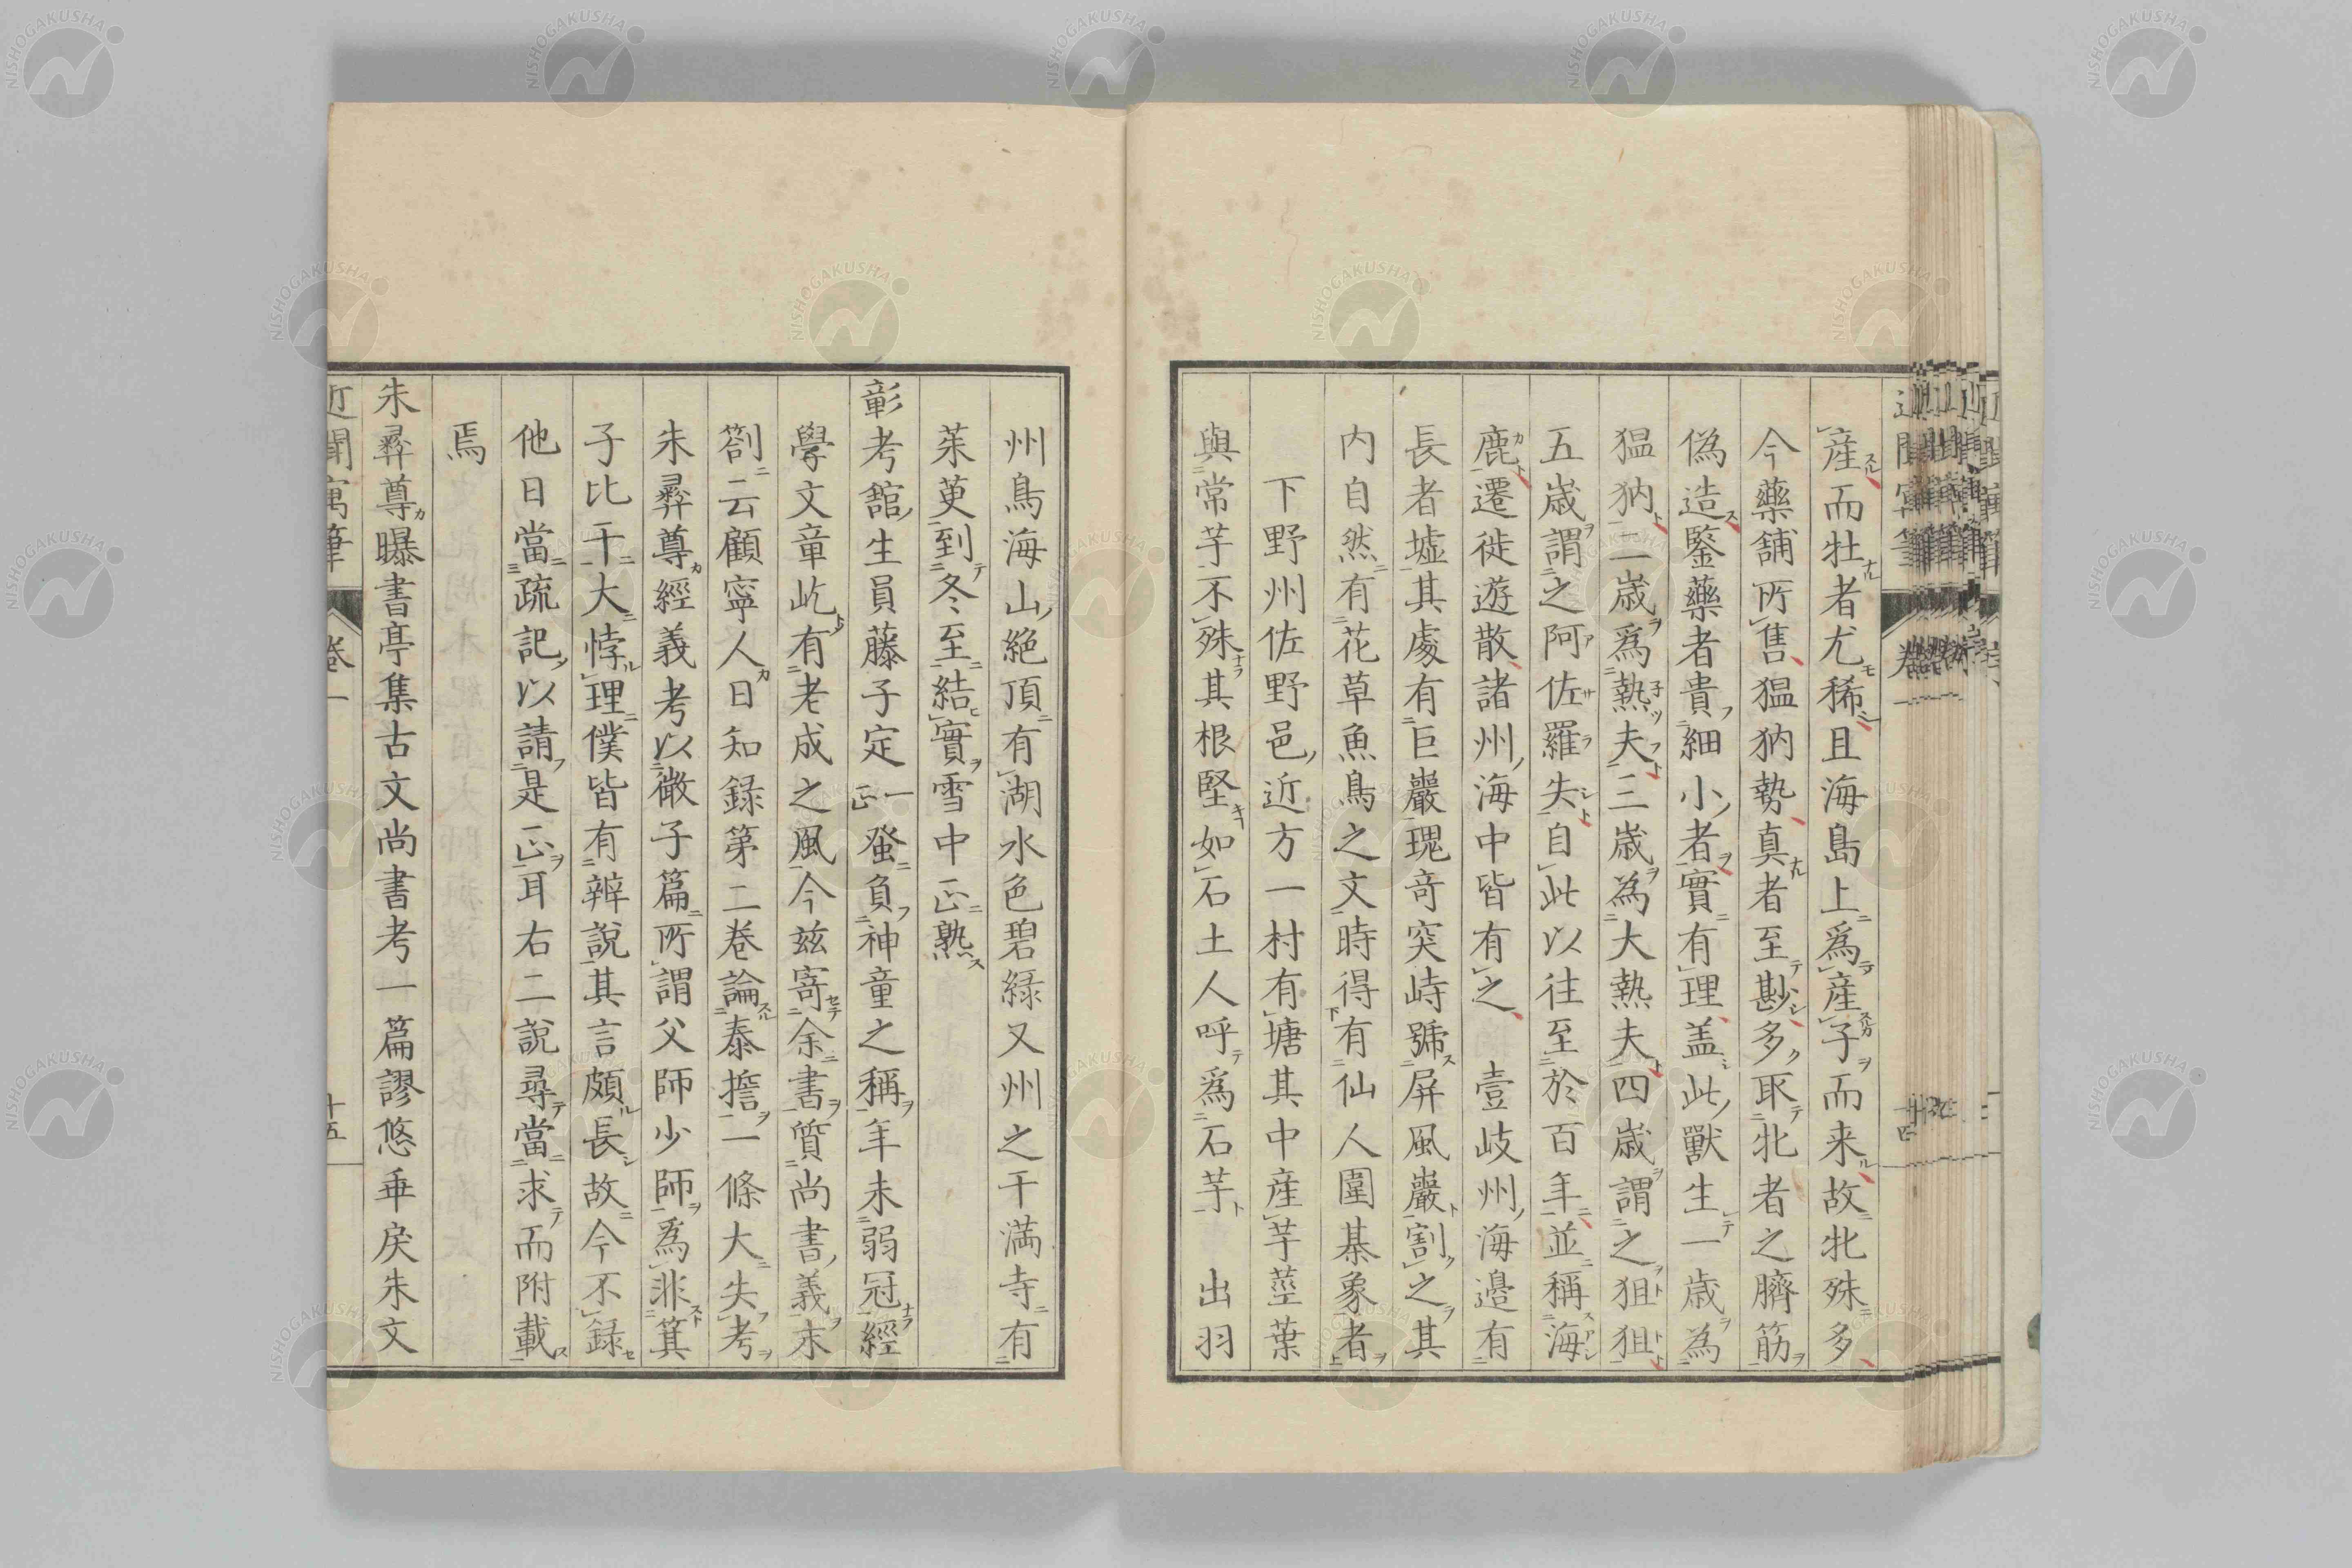 産而牡者尤稀且海島上為産子而来故牝殊多
今藥舗所售猛肭勢真者至尠多取牝者之臍筋
偽造鑒藥者貴細小者實有理盖此獸生一歳為
猛肭二歳爲熱夫三歳為大熱夫四歳謂之狙狙
五歳謂之阿佐羅失自此以往至於百年並稱海
鹿遷徙遊散諸州海中皆有之　壹岐州海邉有
長者墟其處有巨巖瑰奇突峙號屏風巖割之其
内自然有花草魚鳥之文時得有仙人圍棊象者
下野州佐野邑近方一村有塘其中産芋莖葉
與常芋不殊其根堅如石土人呼爲石芋　出羽
州鳥海山絶頂有湖水色碧緑又州之干満寺有
茱萸到冬至結實雪中正熟
彰考舘生員藤子定一正蚤負神童之稱年未弱冠經
學文章屹有老成之風今茲寄余書質尚書義末
劄云顧寧人日知録第二巻論泰誓一條大失考
朱彛尊經義考以微子篇所謂父師少師爲非箕
子比干大悖理僕皆有辨説其言頗長故今不録
他日當疏記以請是正耳右二説尋當求而附載
焉
朱彛尊曝書亭集古文尚書考一篇謬悠乖戻朱文
近聞寓筆　巻一　十五